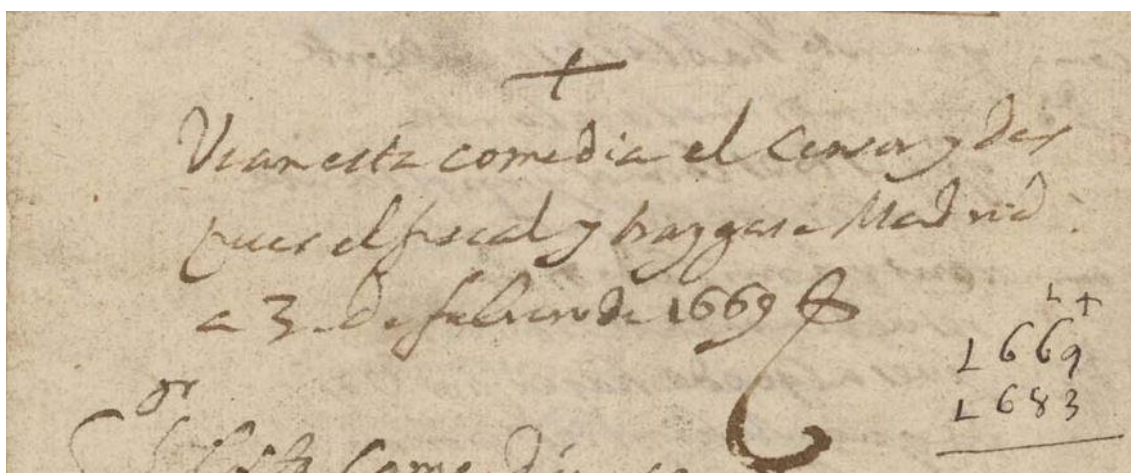 +
Vean esta comedia el Censor y des
pues el fiscal y traygase Madrid
a 3 de febrero de 1669
+
1669
1683
Sor
Esta Comedia